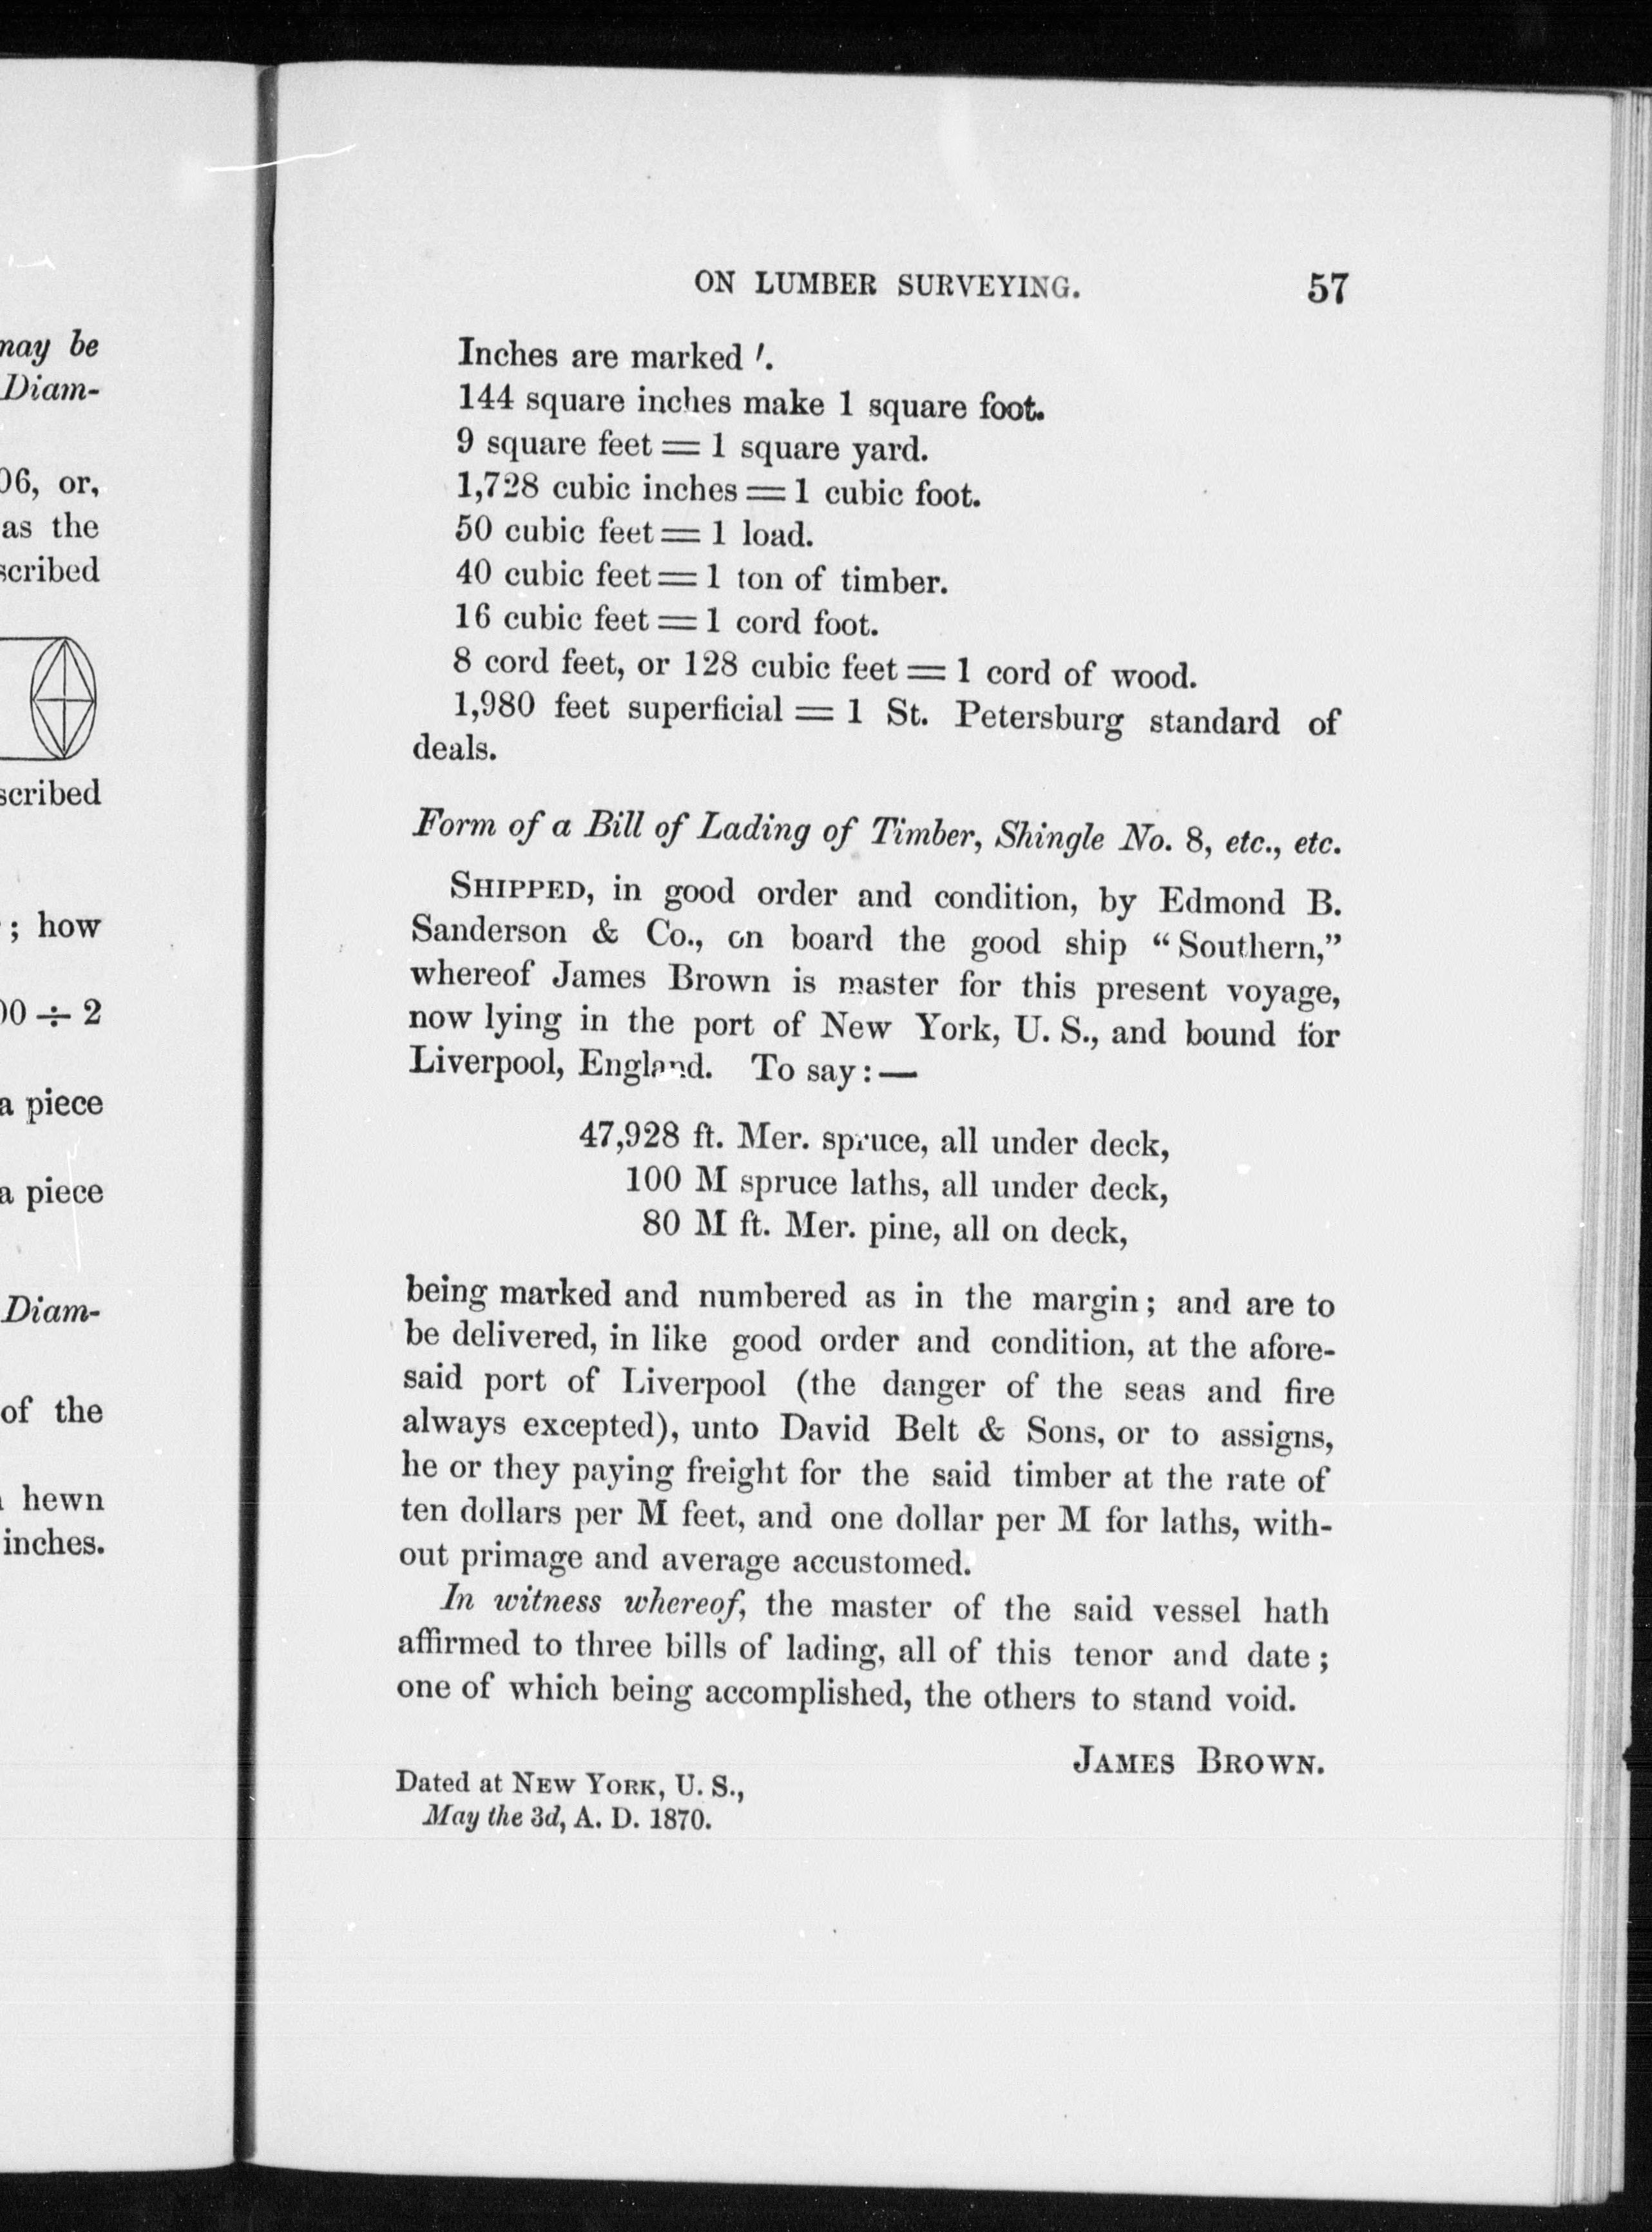 may be
Diam-
06, or,
as the
scribed
scribed
; how
00 ÷ 2
a piece
a piece
Diam-
of the
hewn
inches.
ON LUMBER SURVEYING. 57
Inches are marked ′.
144 square inches make 1 square foot.
9 square feet = 1 square yard.
1,728 cubic inches = 1 cubic foot.
50 cubic feet = 1 load.
40 cubic feet = 1 ton of timber.
16 cubic feet = 1 cord foot.
8 cord feet, or 128 cubic feet = 1 cord of wood.
1,980 feet superficial = 1 St. Petersburg standard of
deals.
Form of a Bill of Lading of Timber, Shingle No. 8, etc., etc.
SHIPPED, in good order and condition, by Edmond B.
Sanderson & Co., on board the good ship “Southern,”
whereof James Brown is master for this present voyage,
now lying in the port of New York, U. S., and bound for
Liverpool, England. To say:—
47,928 ft. Mer. spruce, all under deck,
100 M spruce laths, all under deck,
80 M ft. Mer. pine, all on deck,
being marked and numbered as in the margin; and are to
be delivered, in like good order and condition, at the afore-
said port of Liverpool (the danger of the seas and fire
always excepted), unto David Belt & Sons, or to assigns,
he or they paying freight for the said timber at the rate of
ten dollars per M feet, and one dollar per M for laths, with-
out primage and average accustomed.
In witness whereof, the master of the said vessel hath
affirmed to three bills of lading, all of this tenor and date;
one of which being accomplished, the others to stand void.
JAMES BROWN.
Dated at NEW YORK, U. S.,
May the 3d, A. D. 1870.